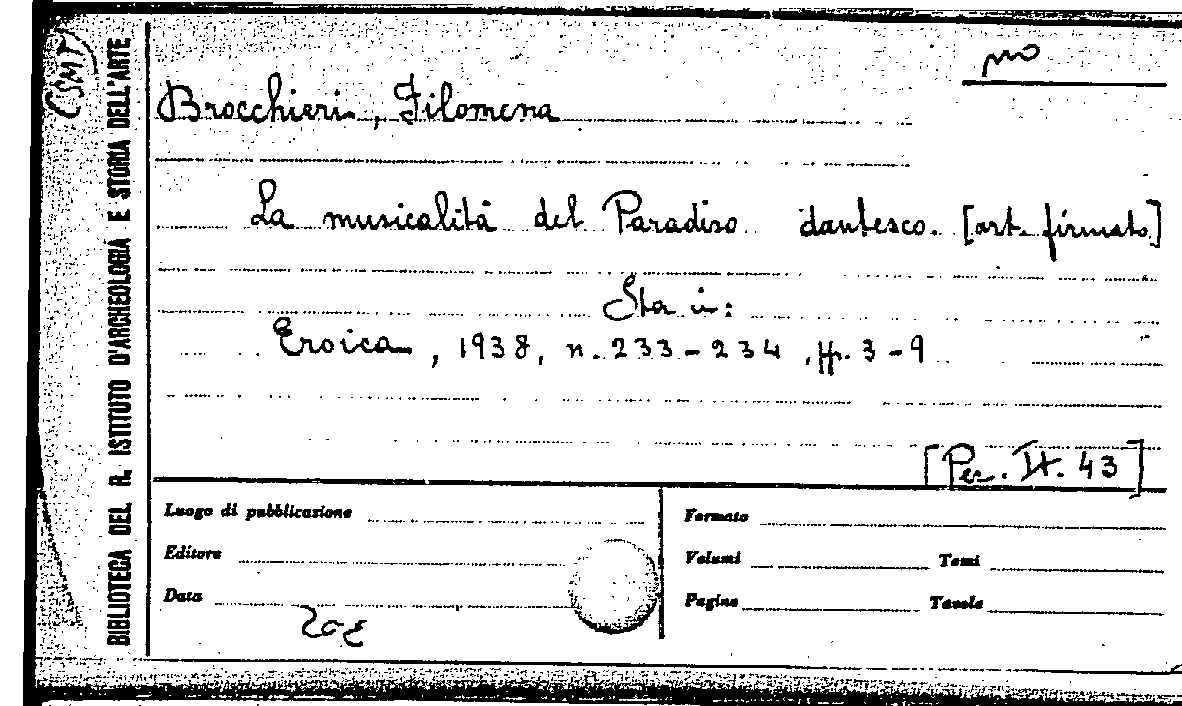 (SMT)
BIBLIOTECA DEL R. ISTITUTO D'ARCHEOLOGIA E STORIA DELL'ARTE
Brocchieri, Filomena
La musicalità del Paradiso dantesco. [art. firmato]
Sta in:
Eroica, 1938, n. 233-234, pp. 3-9
[Per. It. 43]
Luogo di pubblicazione
Editore
Data
Formato
Volumi Tomi
Pagine Tavole